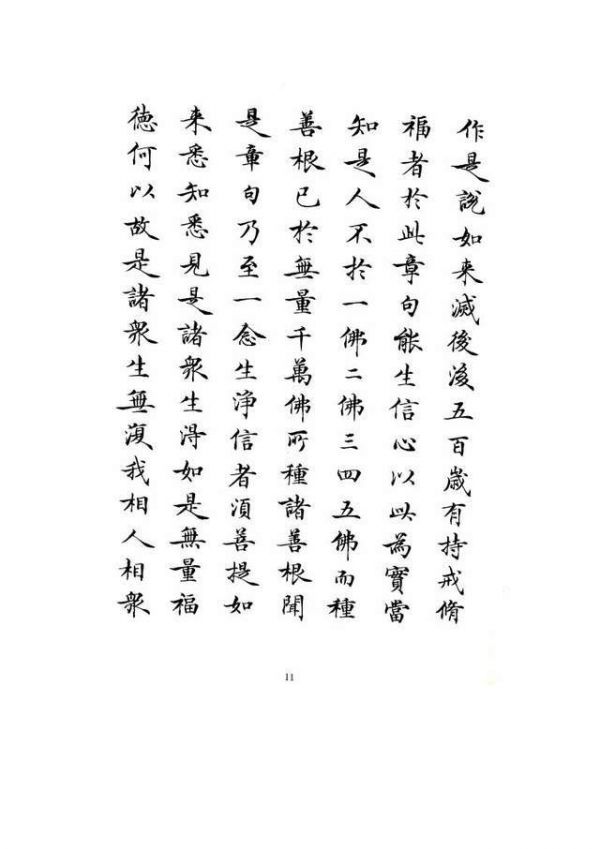 作是說如来滅後後五百歲有持戒脩
福者於此章句能生信心以此為實當
知是人不於一佛二佛三四五佛而種
善根已於無量千萬佛所種諸善根聞
是章句乃至一念生淨信者須菩提如
来悉知悉見是諸衆生得如是無量福
德何以故是諸衆生無復我相人相衆
11